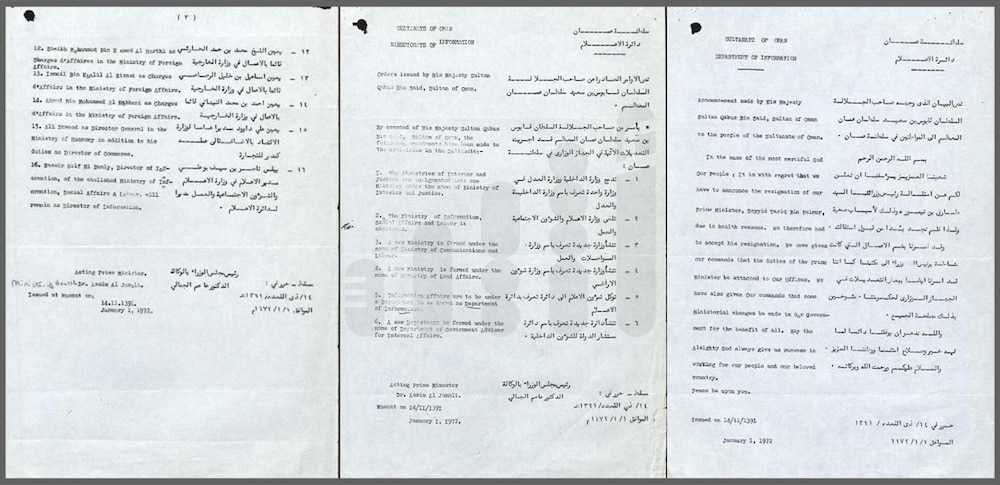 ( ٣ )
12. Sheikh Mohammed Bin H amed Al Harthi as
Charges d'Affaires in the Ministry of Foreign
Affairs.
13. Ismail Bin Khalil Al Risasi as Charges
d'Affairs in the Ministry of Foreign Affairs.
14. Ahmed Bin Mohammed Al Nabhani as Charges
d'Affairs in the Ministry of Foreign Affairs.
15. Ali Dawood as Director General in the
Ministry of Economy in addition to his
duties as Director of Commerce.
16. Nassir Seif El Bualy, Director of Inf-
ormation, of the abolished Ministry of Inf-
ormation, Social Affairs & Labour, will
remain as Director of Information.
١٢ – يعين الشيخ محمد بن حمد الحارثي
قائما بالاعمال في وزارة الخارجية
١٣ – يعين اسماعيل بن خليل الرصاصي
قائما بالاعمال في وزارة الخارجية
١٤ – يعين احمد بن محمد النبهاني قائما
بالاعمال في وزارة الخارجية
١٥ – يعين علي داوود مديرا عاما لوزارة
الاقتصاد بالاضافة الى عمله
كمدير للتجارة
١٦ – يبقى ناصر بن سيف بوعلي
مدير الاعلام في وزارة الاعلام
والشؤون الاجتماعية والعمل مديرا
لدائرة الاعلام
Acting Prime Minister.
Minister of Health Dr. Assim Al Jamali.
Issued at Muscat on:
14.11.1391
January 1, 1972.
رئيس مجلس الوزراء بالوكالة
الدكتور عاصم الجمالي
مسقط – حرر في :
١٤/ذي القعدة/١٣٩١ه
الموافق ١٩٧٢/١/١م
SULTANATE OF OMAN
DIRECTORATE OF INFORMATION
سلطنة عمان
دائرة الاعلام
Orders issued by His Majesty Sultan
Qabus Bin Said, Sultan of Oman.
نص الاوامر الصادرة من صاحب الجلالة
السلطان قابوس بن سعيد سلطان عمان
المعظم .
By command of His Majesty Sultan Qabus
Bin Said, Sultan of Oman, the
following amendments have been made to
the Ministries in the Sultanate:-
* بأمر من صاحب الجلالة السلطان قابوس
بن سعيد سلطان عمان المعظم لقد اجريت
التعديلات الآتية في الجهاز الوزاري في سلطنة
عمان :
1. The Ministries of Interior and
Justice are amalgamated into one
Ministry under the name of Ministry of
Interior and Justice.
2. The Ministry of Information,
Social Affairs and Labour is
abolished.
3. A new Ministry is formed under the
name of Ministry of Communications and
Labour.
4. A new Ministry is formed under the
name of Ministry of Land Affairs.
5. Information Affairs are to be under
a Department to be known as Department
of Information.
6. A new Department is formed under the
name of Department of Government Adviser
for Internal Affairs.
١ – تدمج وزارة الداخلية ووزارة العدل في
وزارة واحدة تعرف باسم وزارة الداخلية
والعدل
٢ – تلغى وزارة الاعلام والشؤون الاجتماعية
والعمل
٣ – تنشأ وزارة جديدة تعرف باسم وزارة
المواصلات والعمل
٤ – تنشأ وزارة جديدة تعرف باسم وزارة شؤون
الاراضي
٥ – توكل شؤون الاعلام الى دائرة تعرف بدائرة
الاعلام
٦ – تنشأ دائرة جديدة تعرف باسم دائرة
مستشار الدولة للشؤون الداخلية .
Acting Prime Minister
Dr. Assim Al Jamali.
Muscat on 14/11/1391
January 1, 1972.
رئيس مجلس الوزراء بالوكالة
الدكتور عاصم الجمالي
مسقط – حرر في :
١٤/ ذي القعدة/١٣٩١ه
الموافق ١٩٧٢/١/١م
SULTANATE OF OMAN
DEPARTMENT OF INFORMATION
سلطنة عمان
دائرة الاعلام
Announcement made by His Majesty
Sultan Qabus Bin Said, Sultan of Oman
to the people of the Sultanate of Oman.
نص البيان الذي وجهه صاحب الجلالة
السلطان قابوس بن سعيد سلطان عمان
المعظم الى المواطنين في سلطنة عمان .
In the name of the most merciful God
Our People : It is with regret that we
have to announce the resignation of our
Prime Minister, Seyyid Tariq Bin Taimur,
due to health reasons. We therefore had
to accept his resignation. We have given
our commands that the duties of the Prime
Minister be attached to our Offices. We
have also given Our commands that some
Ministerial changes be made in Our Govern-
ment for the benefit of all. May the
Almighty God always give us success in
working for our people and our beloved
country.
Peace be upon you.
بسم الله الرحمن الرحيم
شعبنا العزيز يؤسفنا ان نعلن
لكم عن استقالة رئيس وزرائنا السيد
طارق بن تيمور وذلك لأسباب صحية
ولذا فلم نجد بدا من قبول استقالته
Issued on 14/11/1391
January 1, 1972
حرر في ١٤/ ذي القعدة/ ١٣٩١
الموافق ١٩٧٢/١/١م